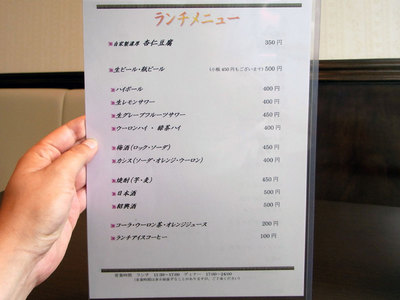 ランチメニュー
自家製濃厚 杏仁豆腐 350円
生ビール・瓶ビール (小瓶450円もございます) 500円
ハイボール 400円
生レモンサワー 400円
生グレープフルーツサワー 450円
ウーロンハイ・緑茶ハイ 400円
梅酒(ロック・ソーダ) 450円
カシス(ソーダ・オレンジ・ウーロン) 400円
焼酎(芋・麦) 450円
日本酒 500円
紹興酒 500円
コーラ・ウーロン茶・オレンジジュース 200円
ランチアイスコーヒー 100円
営業時間 ランチ 11:30~17:00 ディナー 17:00~24:00